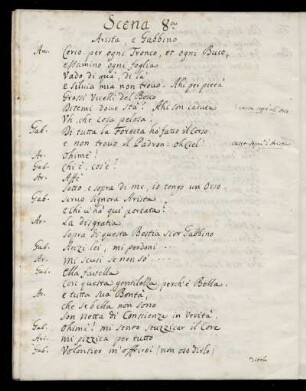 Scena 8.va
Arista, e Gabbino
Ar. Cerco per ogni Tronco, et ogni Buco,
esamino ogni foglia
Vado di quà, di là
e Silvia mia non trovo. Ahi per pietà
Grassi Vitelli del Bosco
Ditemi dove stà? Ahi son caduta
Uh che cosa pelosa.
Gab. Di tutta la Foresta hò fatto il Corso
e non trovo il Padron: oh Ciel!
Ar. Ohimè!
Gab. Chi è, cos'è?
Ar. Affè
Sotto, e sopra di me, io tengo un Orso.
Gab. Serva Signora Arista
e chi v'hà quì portata?
Ar. La disgrazia
Sopra di questa Bestia Sior Gabbino
Gab. Anzi lei, mi perdoni ...
Ar. Mi scusi se non sò ...
Gab. Ella favella
Così questa gentilezza perch'è Bella.
Ar. e tutta sua Bontà,
Che se bella non sono
Son netta di Conscienza in Verità.
Gab. Ohimè! mi sento stuzzicar il Core
Ar. mi pizzica per tutto
Gab. Volontier m'offrirei (non oso dirlo)